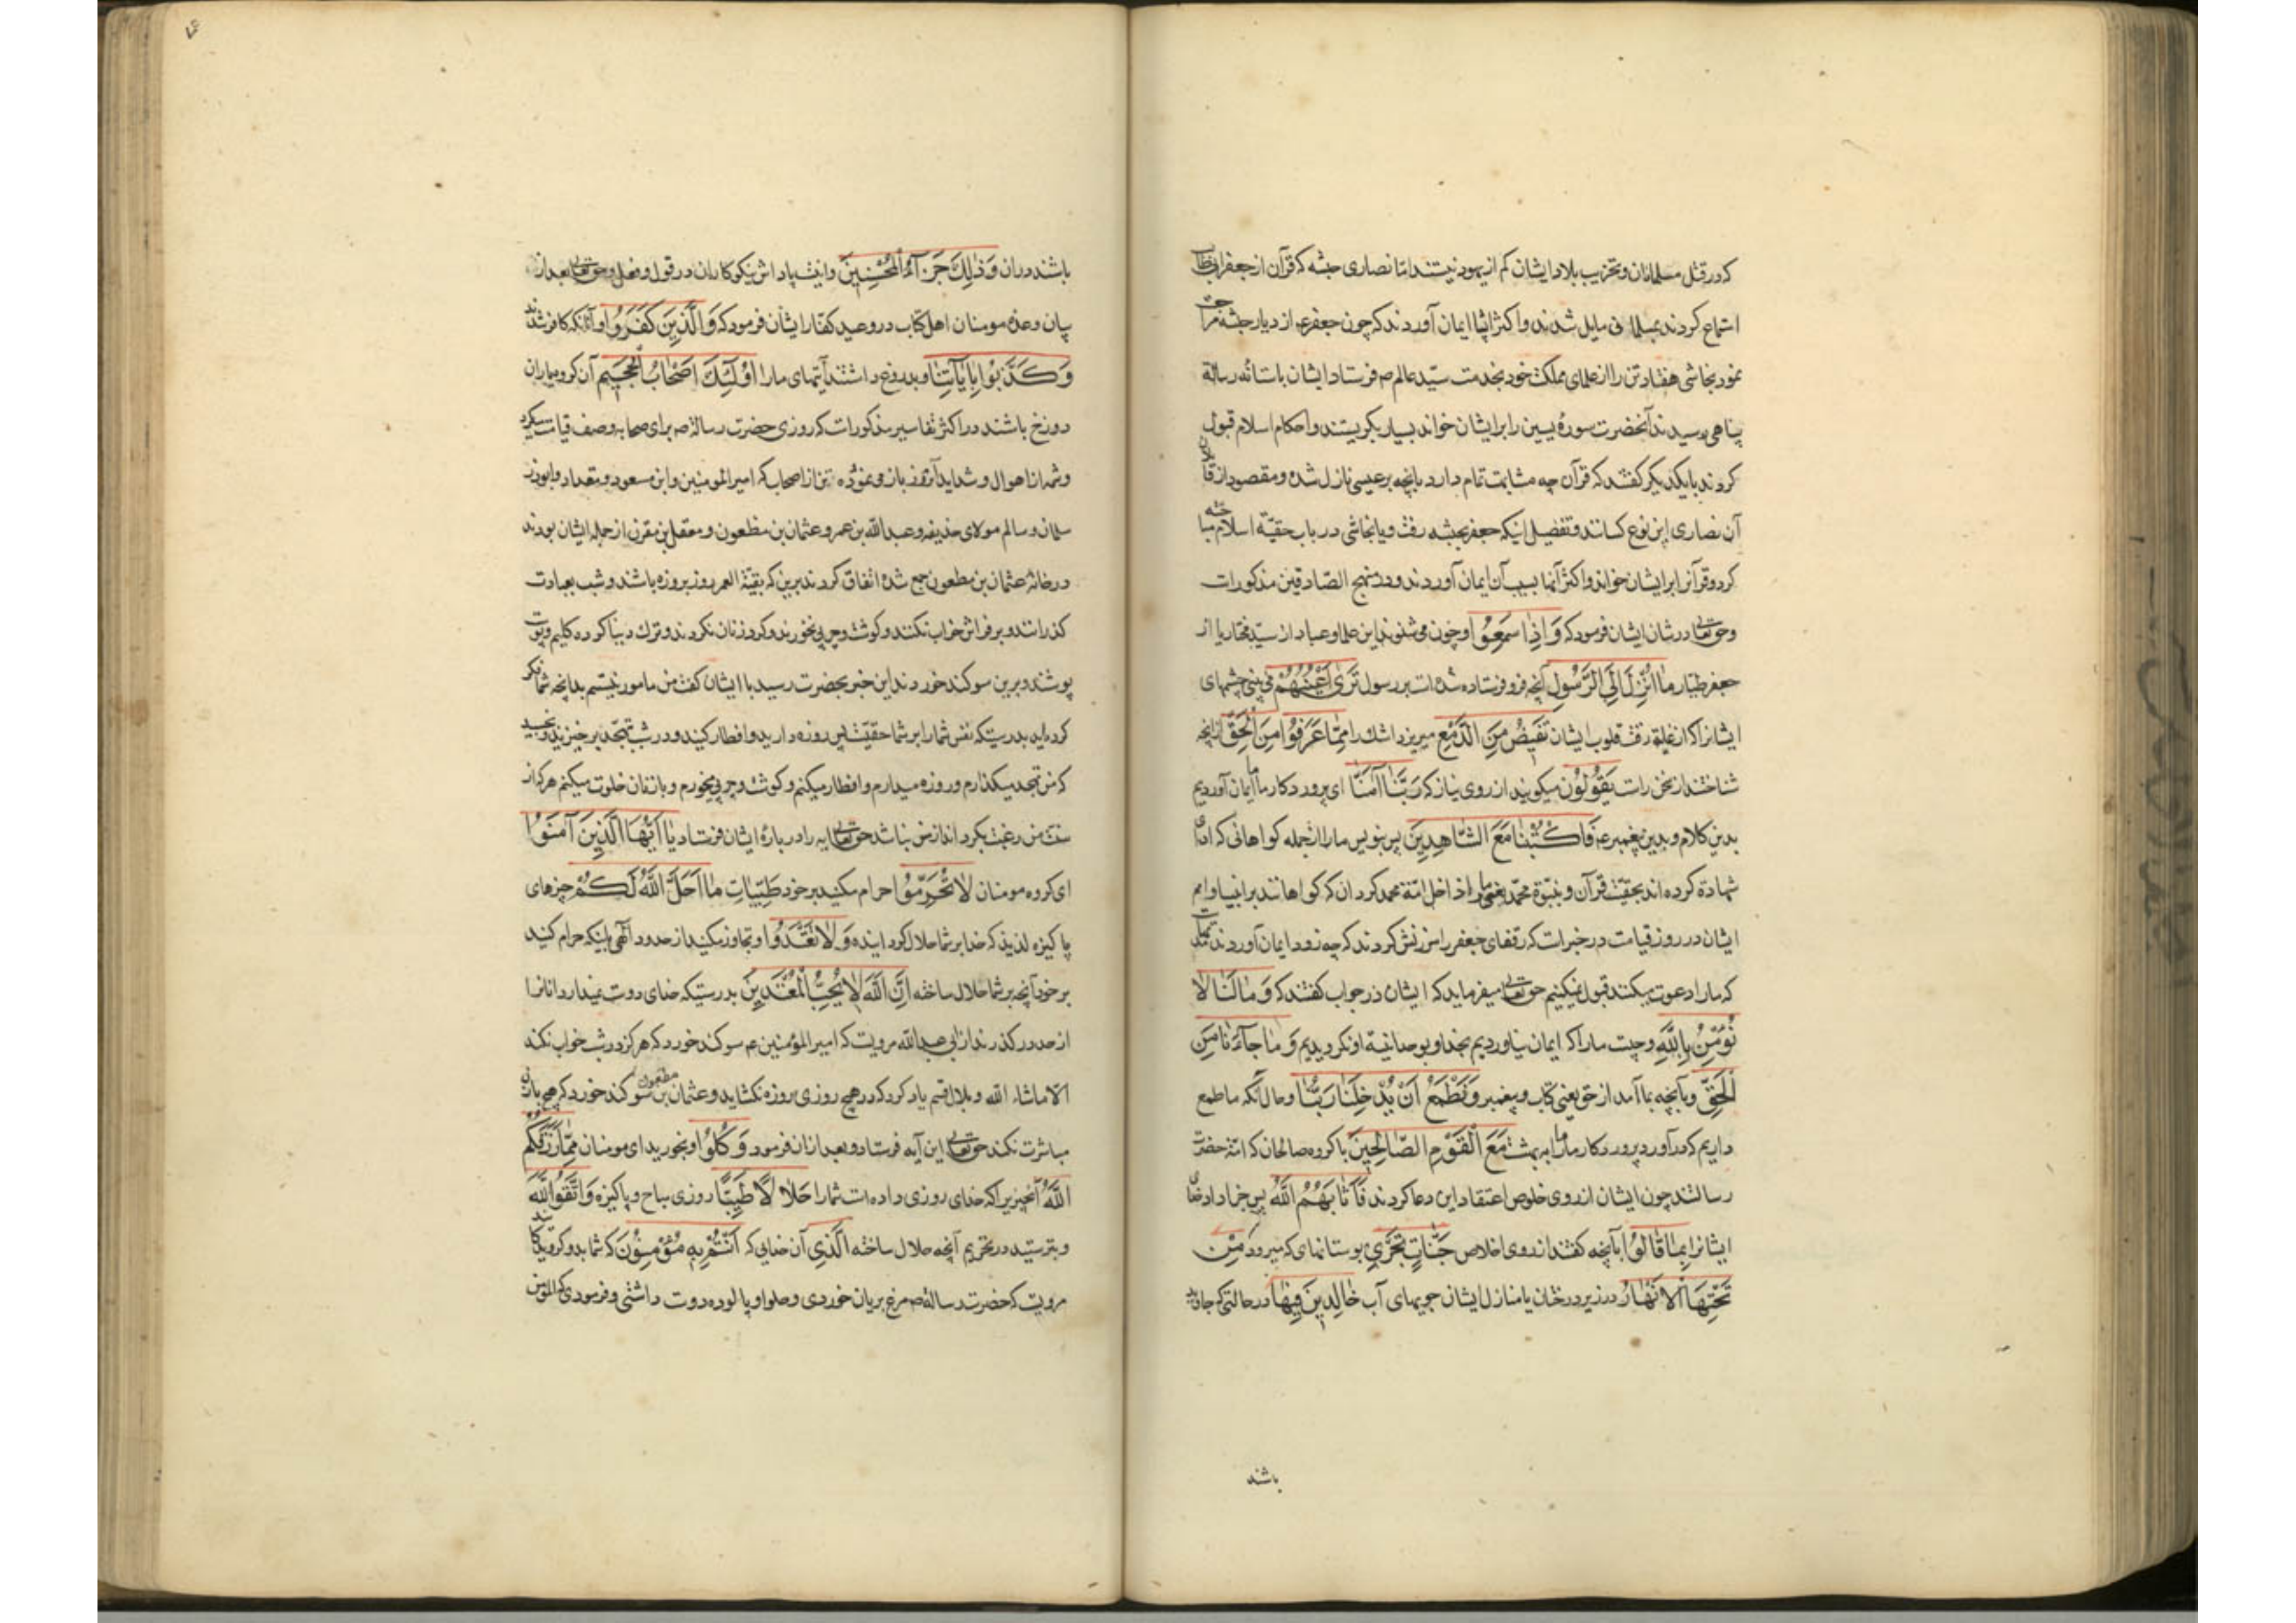 که در قتل مسلمانان و تخریب بلاد ایشان کم از یهود نیستند امّا نصاری حبشه که قرآن از جعفر
استماع کردند بمسلمانی مایل شدند و اکثر ایشان ایمان آوردند که چون جعفر ع از دیار حبشه
نمود نجاشی هفتاد تن را از علمای مملکت خود بخدمت سیّد عالم ص فرستاد ایشان باستانه رسالة
پناهی رسیدند آنحضرت سورهٔ یسین را بر ایشان خواند بسیار بکریستند و احکام اسلام قبول
کردند با یکدیکر کفتند که قرآن چه مشابهت تمام دارد بانچه بر عیسی نازل شده و مقصود از
آن نصاری این نوع کسانند و تفصیل اینکه جعفر بحبشه رفت و با نجاشی در باب حقیّة اسلام
کرد و قرآنرا بر ایشان خواند و اکثر آنها بسبب آن ایمان آوردند و در منهج الصّادقین مذکورات
و حق تعالی در شان ایشان فرمود که وَاِذا سَمِعُوا و چون می شنوند این علما و عباد از سیّد مختار یا از
جعفر طیّار ما اُنْزِلَ اِلَی الرَّسُولِ آنچه فرو فرستاده شده است بر رسول تَریٰ اَعْیُنَهُمْ می بینی چشمهای
ایشانرا که از غلبهٔ رقت قلوب ایشان تَفیضُ مِنَ الدَّمْعِ میریزد اشک را مِمّا عَرَفُوا مِنَ الْحَقِّ از انچه
شناختند از سخن راست یَقُولُونَ میکویند از روی نیاز که رَبَّنا آمَنّا ای پروردکار ما ما ایمان آوردیم
بدین کلام و بدین پیغمبر ع فَاکْتُبْنا مَعَ الشّاهِدینَ پس بنویس ما را از جمله کواهانی که ادای
شهادة کرده اند بحقیّت قرآن و نبوّة محمّد یعنی ما را داخل امّة محمد کردان که کواهانند بر انبیا و امم
ایشان در روز قیامت در خبرات که رفقای جعفر را سرزنش کردند که چه زود ایمان آوردند
که ما را دعوت میکنند قبول نمیکنیم حق تعالی میفرماید که ایشان در جواب کفتند که وَما لَنا لا
نُؤْمِنُ بِاللّٰهِ و چیست ما را که ایمان نیاوردیم بخدا و بوحدانیة او نکرویدیم وَما جاءَنا مِنَ
الْحَقِّ و بآنچه بما آمد از حق یعنی کتاب و پیغمبر وَنَطْمَعُ اَنْ یُدْخِلَنا رَبُّنا و حال آنکه ما طمع
داریم که در آورد پروردکار ما ما را به بهشت مَعَ الْقَوْمِ الصّالِحینَ با کروه صالحان که امّة حضرت
رسالتند چون ایشان از روی خلوص اعتقاد این دعا کردند فَاَثابَهُمُ اللّٰهُ پس جزا داد خدای
ایشانرا بِما قالُوا بآنچه کفتند از روی اخلاص جَنّاتٍ تَجْری بوستانهای که میرود مِنْ
تَحْتِهَا الْاَنْهارُ در زیر درختان یا منازل ایشان جویهای آب خالِدینَ فیها در حالتی که جاوید
باشند
باشند دران وَذٰلِکَ جَزاءُ الْمُحْسِنینَ و اینست پاداش نیکوکاران در قول و فعل و حق تعالی بعد از
بیان وعدهٔ مومنان اهل کتاب در وعید کفّار ایشان فرمود که وَالَّذینَ کَفَرُوا و آنانکه کافر شدند
وَکَذَّبُوا بِآیاتِنا و بدروغ داشتند آیتهای ما را اُولٰئِکَ اَصْحابُ الْجَحیمِ آن کروه یاران
دوزخ باشند در اکثر تفاسیر مذکورات که روزی حضرت رسالة ص برای صحابه وصف قیامت میکرد
و شمه از اهوال و شداید آنروز باز می نمود ده تن از اصحاب که امیر المومنین و ابن مسعود و مقداد و ابوذر
سلمان و سالم مولای حذیفه و عبد اللّه بن عمر و عثمان بن مظعون و معقل بن مقرن از جمله ایشان بودند
در خانهٔ عثمان بن مظعون جمع شده اتفاق کردند برین که بقیّة العمر روز بروزه باشند و شب بعبادت
کذرانند و بر فراش خواب نکنند و کوشت و چربی نخورند و کرد زنان نکردند و ترک دنیا کرده کلیم
پوشند و برین سوکند خوردند این خبر بحضرت رسید با ایشان کفت من مامور نیستم بدانچه شما
کرده اید بدرستیکه نفس شما را بر شما حقیست پس روزه دارید و افطار کنید و در شب بتهجّد برخیزید
که من تهجد میکذارم و روزه میدارم و افطار میکنم و کوشت و چربی میخورم و با زنان خلوت میکنم هر که از
سنت من رغبت بکرداند از من نباشد حق تعالی ایه را در بارهٔ ایشان فرستاد یا اَیُّهَا الَّذینَ آمَنُوا
ای کروه مومنان لا تُحَرِّمُوا حرام مکنید بر خود طَیِّباتِ ما اَحَلَّ اللّٰهُ لَکُمْ چیزهای
پاکیزه لذیذ که خدا بر شما حلال کردانیده وَلا تَعْتَدُوا و تجاوز مکنید از حدود آلهی باینکه حرام کنید
بر خود آنچه بر شما حلال ساخته اِنَّ اللّٰهَ لا یُحِبُّ الْمُعْتَدینَ بدرستیکه خدای دوست نمیدارد انانرا
از حد در کذرند از ابی عبد اللّه مرویست که امیر المؤمنین ع سوکند خورد که هرکز در شب خواب نکند
الّا ما شاء اللّه و بلال قسم یاد کرد که در هیچ روزی روزه نکشاید و عثمان بن مظعون سوکند خورد که هیچ با زن
مباشرت نکند حق تعالی این آیه فرستاد و بعد از ان فرمود وَکُلُوا و بخورید ای مومنان مِمّا رَزَقَکُمُ
اللّٰهُ آنچیزیرا که خدای روزی داده است شما را حَلالاً طَیِّباً روزی مباح و پاکیزه وَاتَّقُوا اللّٰهَ
و بترسید در تحریم آنچه حلال ساخته الَّذی آن خدایی که اَنْتُمْ بِهِ مُؤْمِنُونَ که شما بدو کرویدکانید
مرویست که حضرت رسالة ص مرغ بریان خوردی و حلوا و پالوده دوست داشتی و فرمودی که المؤمن